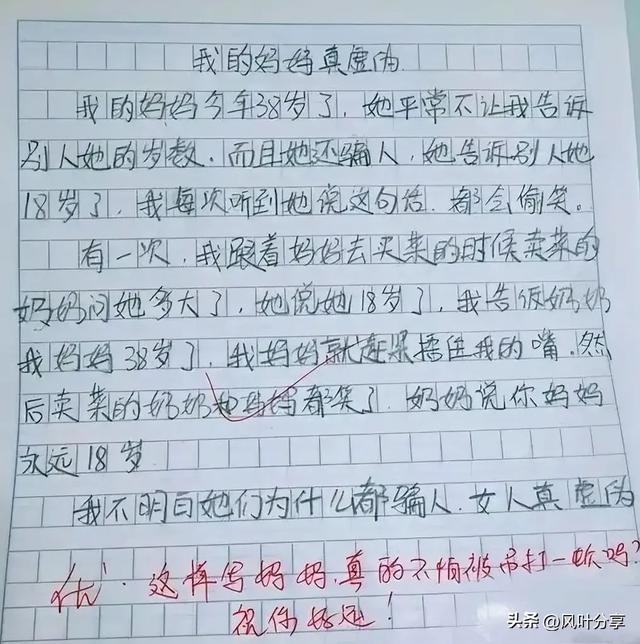 我的妈妈真虚伪
我的妈妈今年38岁了，她平常不让我告诉
别人她的岁数．而且她还骗人，她告诉别人她
18岁了，我每次听到她说这句话．都会偷笑。
有一次，我跟着妈妈去买菜的时候卖菜的
奶奶问她多大了，她说她18岁了，我告诉奶奶
我妈妈38岁了，我妈妈就赶紧捂住我的嘴．然
后卖菜的奶奶和妈妈都笑了．奶奶说你妈妈
永远18岁
我不明白她们为什么都骗人．女人真虚伪
优·这样写妈妈，真的不怕被吊打一顿吗？
祝你好运！
头条 @风叶分享